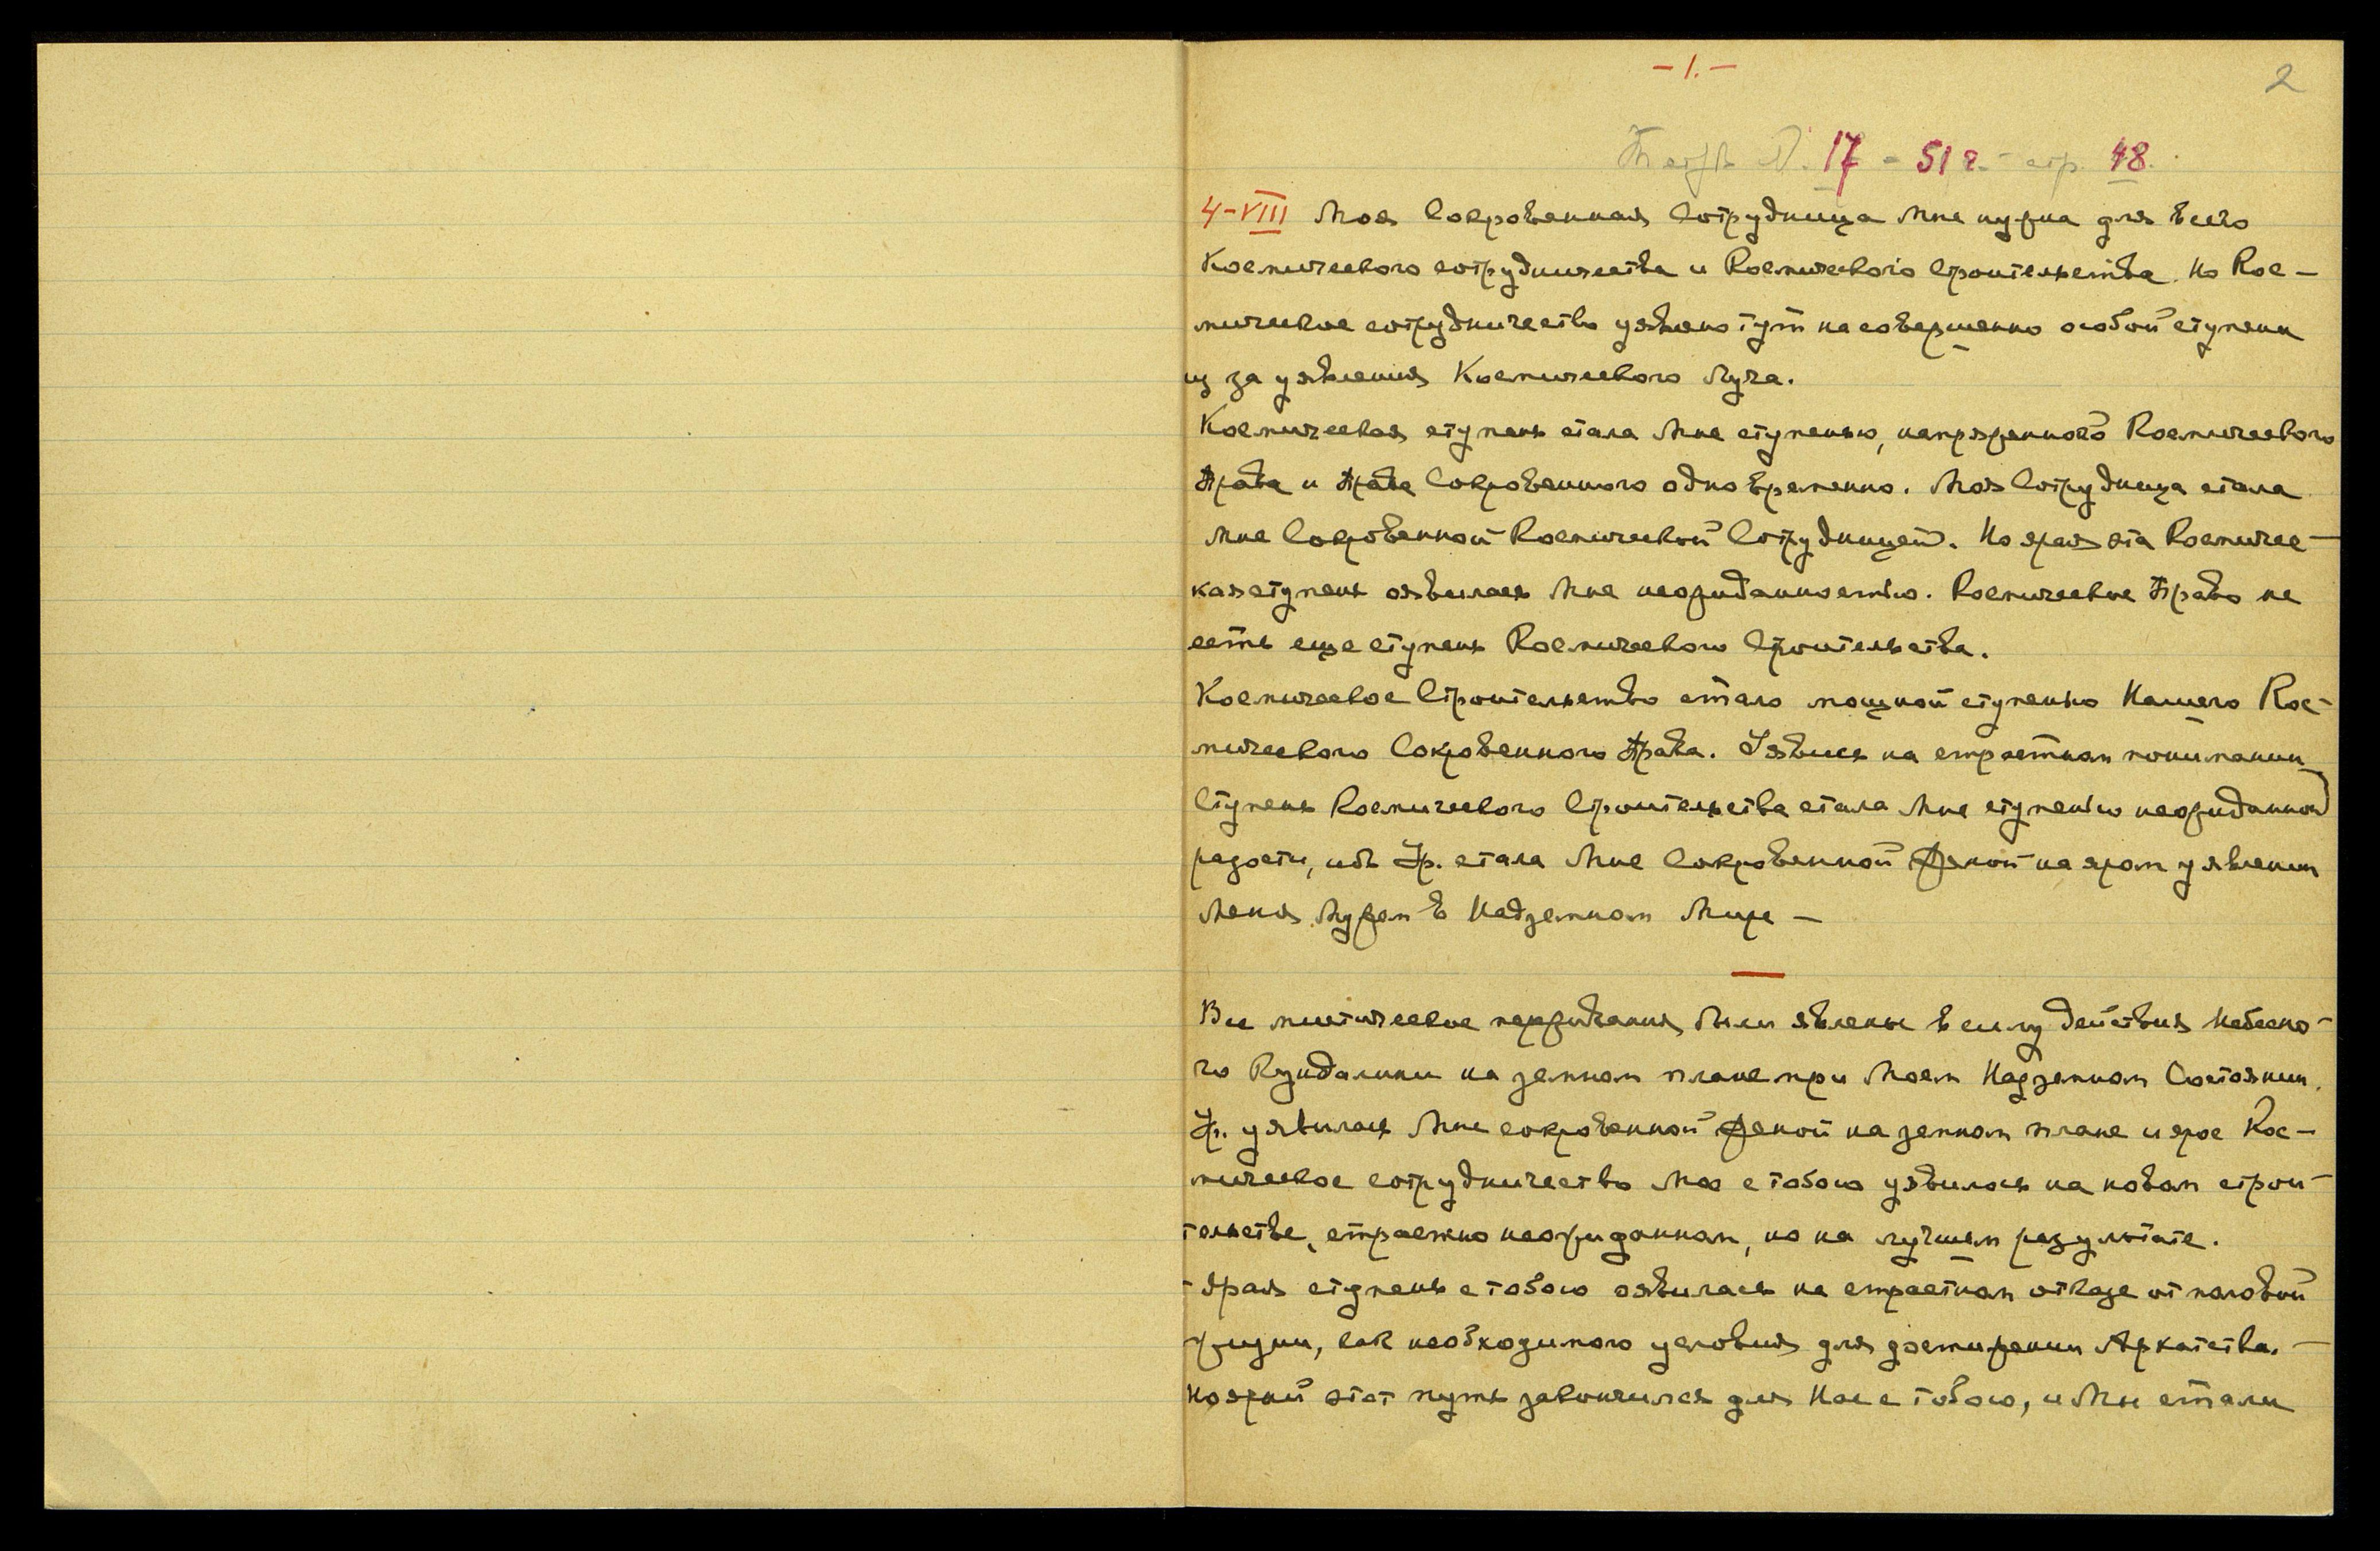 - 1. -
2
Тетр. N. 17 - 51 г. - стр. 48.
4-VIII Моя Сокровенная Сотрудница Мне нужна для всего
Космического сотрудничества и Космического Строительства. Но Кос-
мическое сотрудничество уявлено тут на совершенно особой ступени
из за уявления Космического Луча.
Космическая ступень стала Мне ступенью, напряженного Космического
Права и Права Сокровенного одновременно. Моя Сотрудница стала
Мне Сокровенной Космической Сотрудницей. Но ярая эта Космичес-
кая ступень оявилась Мне неожиданностью. Космическое Право не
есть еще ступень Космического Строительства.
Космическое Строительство стало мощной ступенью Нашего Кос-
мического Сокровенного Права. Уявись на страстном понимании
Ступень Космического Строительства стала Мне ступенью неожиданной
радости, ибо Ур. стала Мне Сокровенной Женой на яром уявлении
Меня Мужем в Надземном Мире —
Все мистические переживания были явлены в силу действия Небесно-
го Кундалини на земном плане при Моем Надземном Состоянии.
Ур. уявилась Мне сокровенной женой на земном плане и ярое Кос-
мическое сотрудничество Мое с тобою уявилось на новом строи-
тельстве, страстно неожиданном, но на лучшем результате.
- Ярая ступень с тобою оявилась на страстном отказе от половой
жизни, как необходимого условия для достижения Архатства. -
Но ярый этот путь закончился для Нас с тобою, и Мы стали